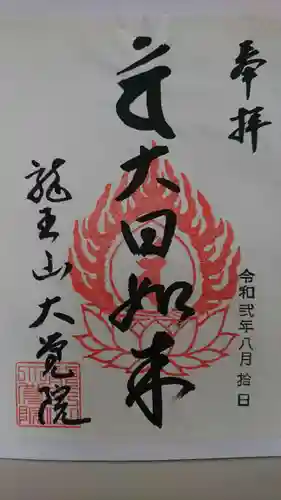 奉拝
大日如来
令和弐年八月拾日
龍王山大覚院